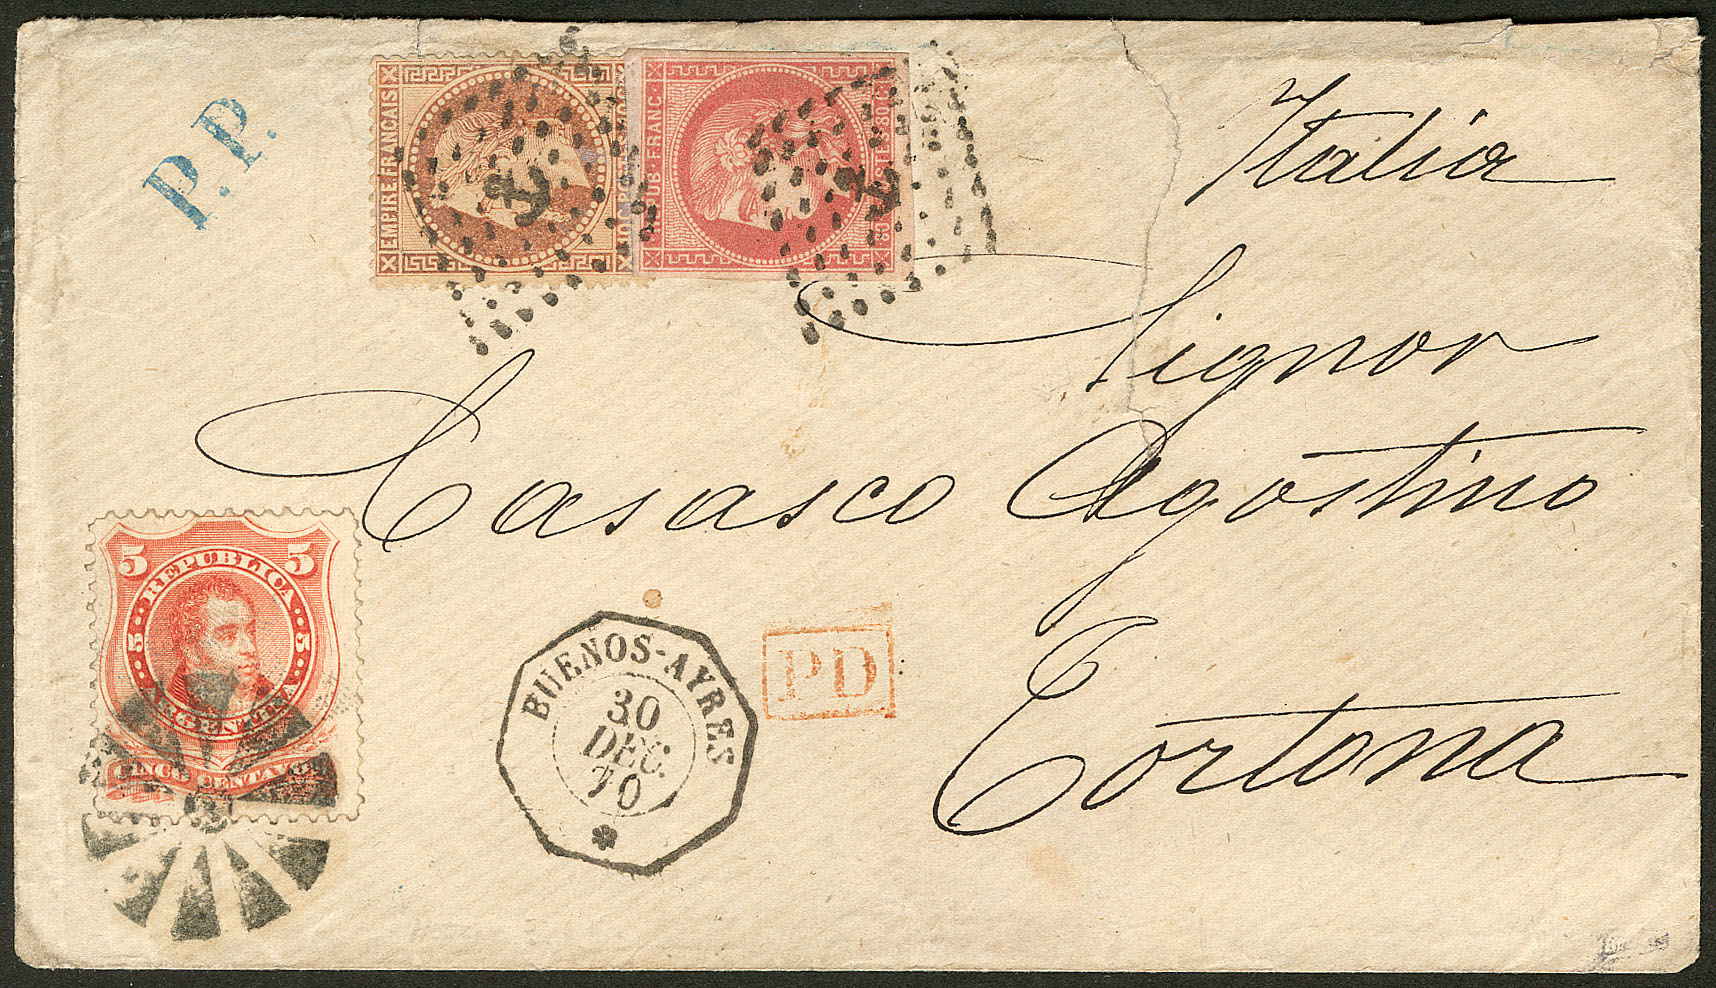 P.P.
EMPIRE FRANÇAIS
REPUB FRANC.
Italia
Signor
Casasco Agostino
Tortona
5 5
REPUBLICA
5 5
ARGENTINA
CINCO CENTAVOS
BUENOS-AYRES
30
DEC.
70
PD